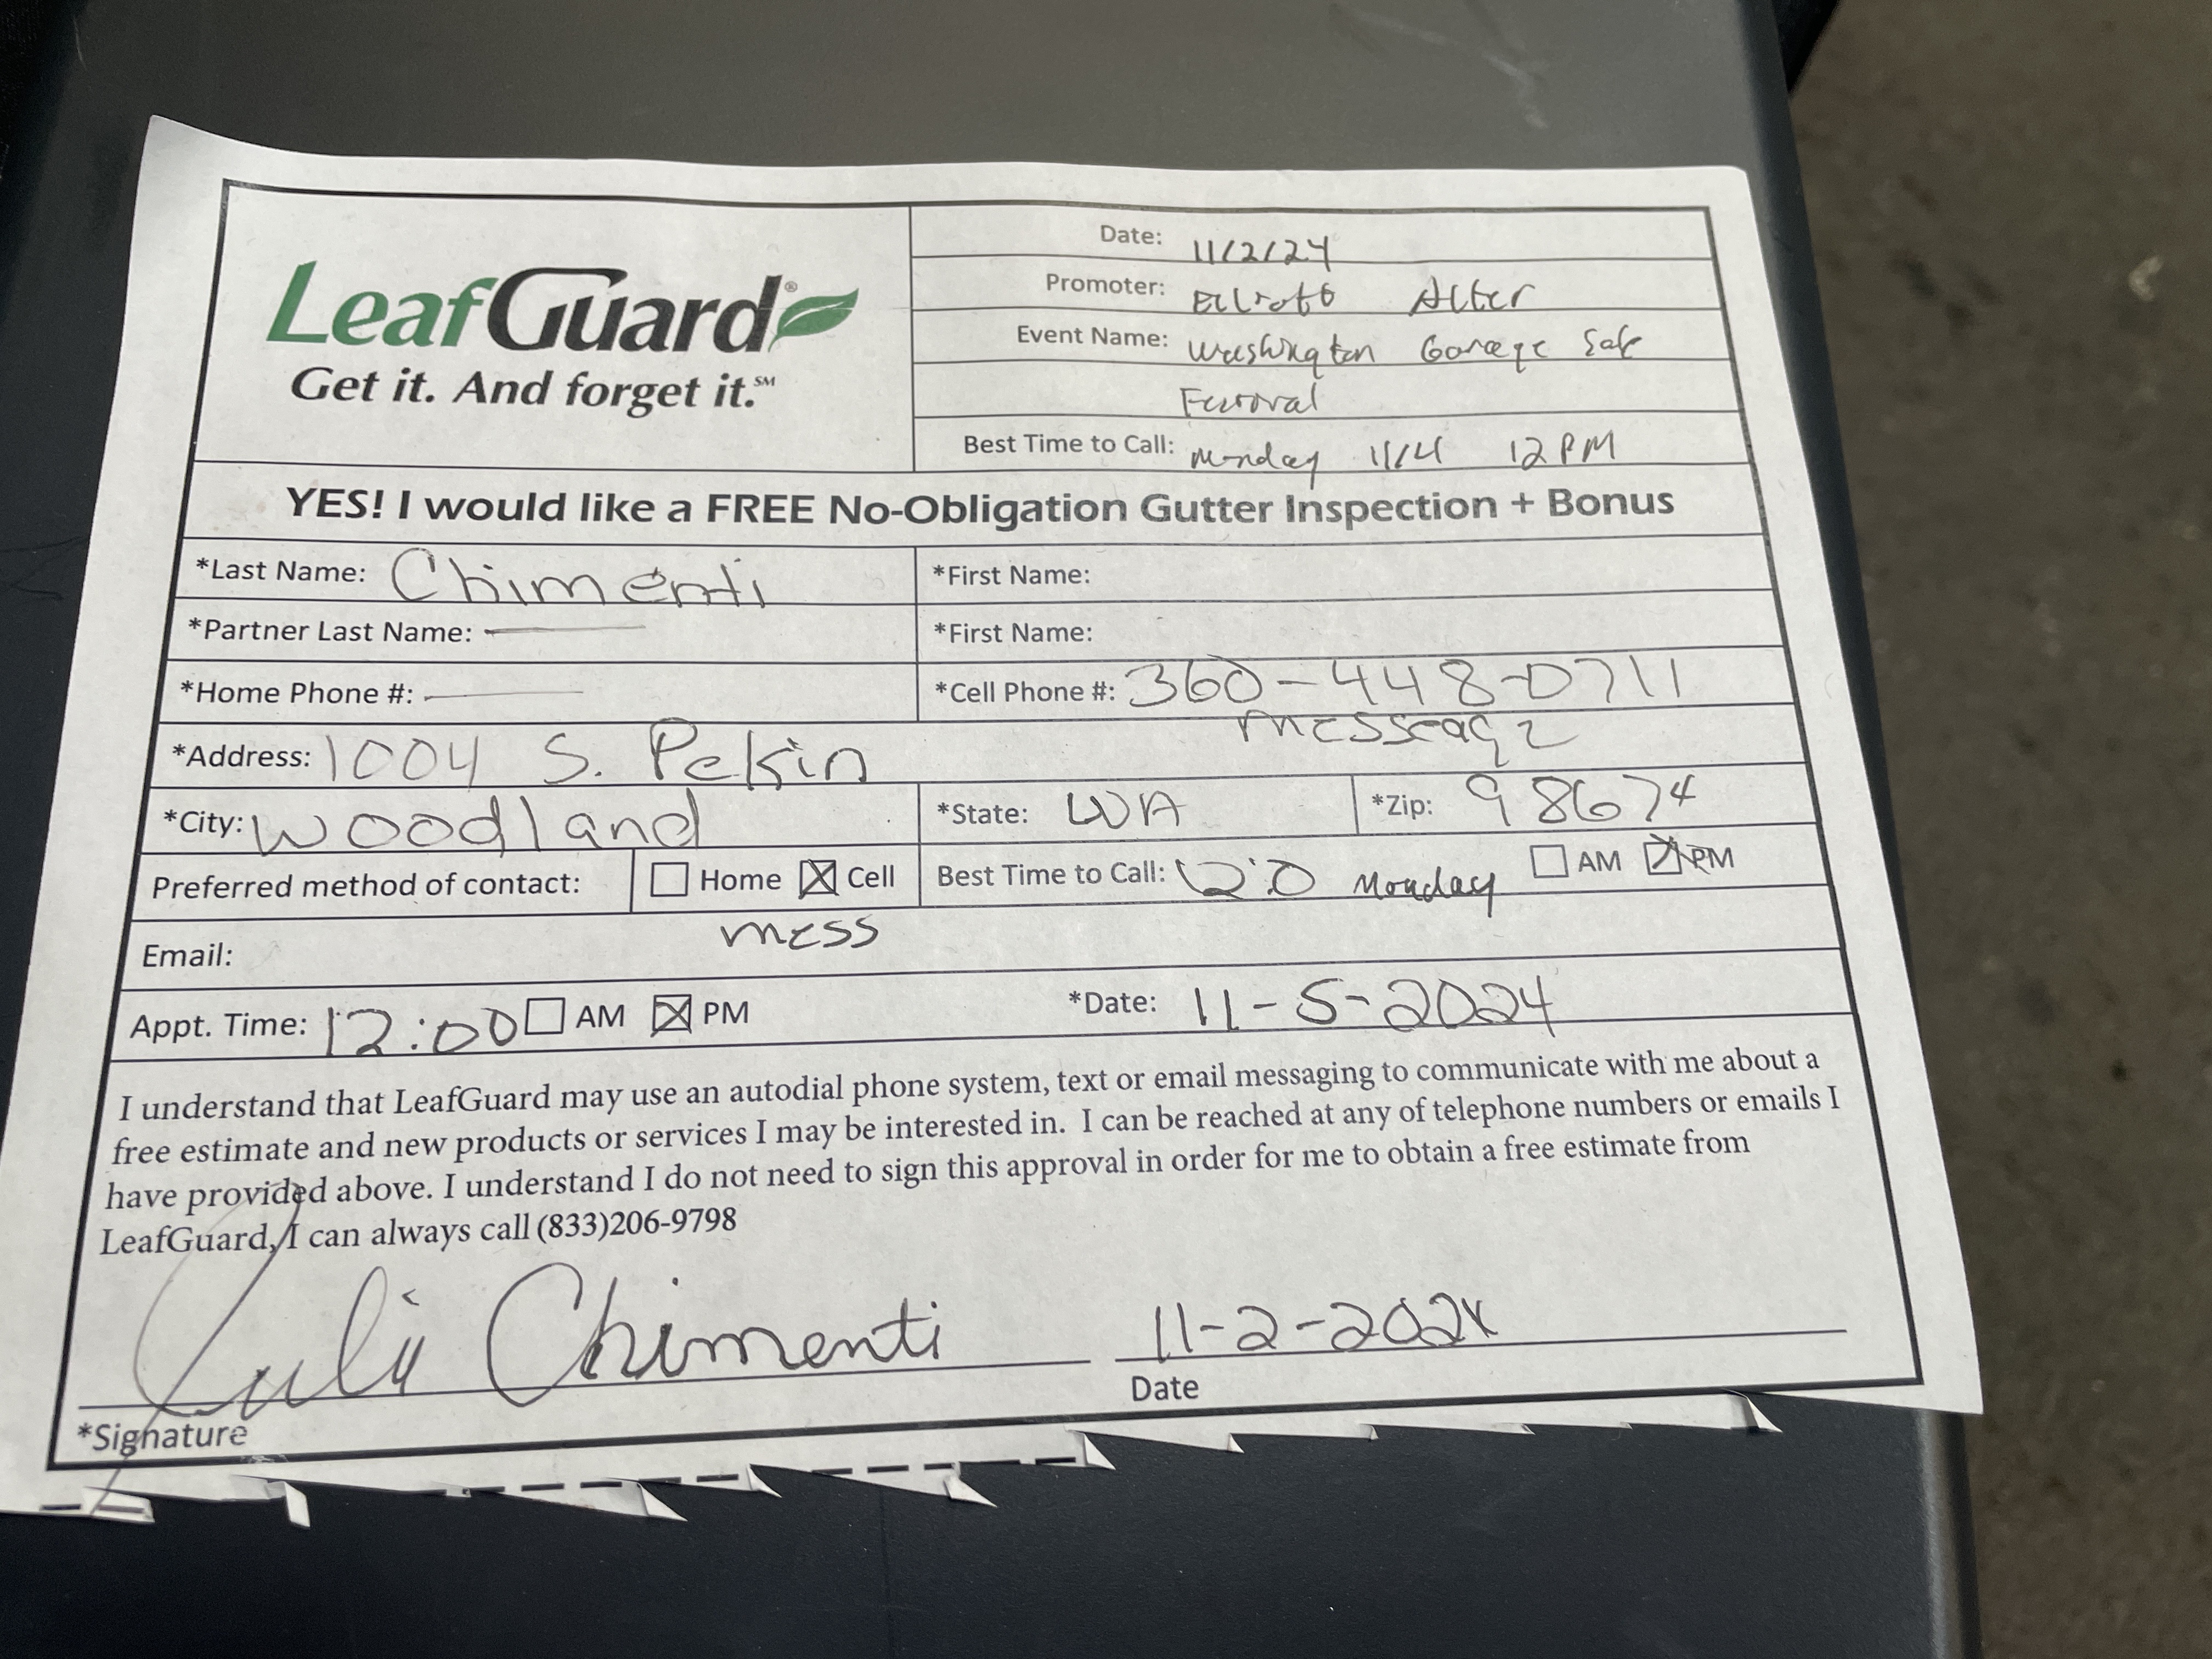 LeafGuard®
Get it. And forget it.℠
Date: 11/2/24
Promoter: Alber
Event Name: Washington Garage Sale
Best Time to Call: Monday 11/4 12 PM
YES! I would like a FREE No-Obligation Gutter Inspection + Bonus
*Last Name: Chimenti *First Name:
*Partner Last Name: — *First Name:
*Home Phone #: — *Cell Phone #: 360-448-0711
message
*Address: 1004 S. Pekin
*City: Woodland *State: WA *Zip: 98674
Preferred method of contact: ☐ Home ☒ Cell Best Time to Call: Monday ☐ AM ☒ PM
Email: mess
Appt. Time: 12:00 ☐ AM ☒ PM *Date: 11-5-2024
I understand that LeafGuard may use an autodial phone system, text or email messaging to communicate with me about a
free estimate and new products or services I may be interested in. I can be reached at any of telephone numbers or emails I
have provided above. I understand I do not need to sign this approval in order for me to obtain a free estimate from
LeafGuard, I can always call (833)206-9798
Chimenti 11-2-2024
*Signature Date